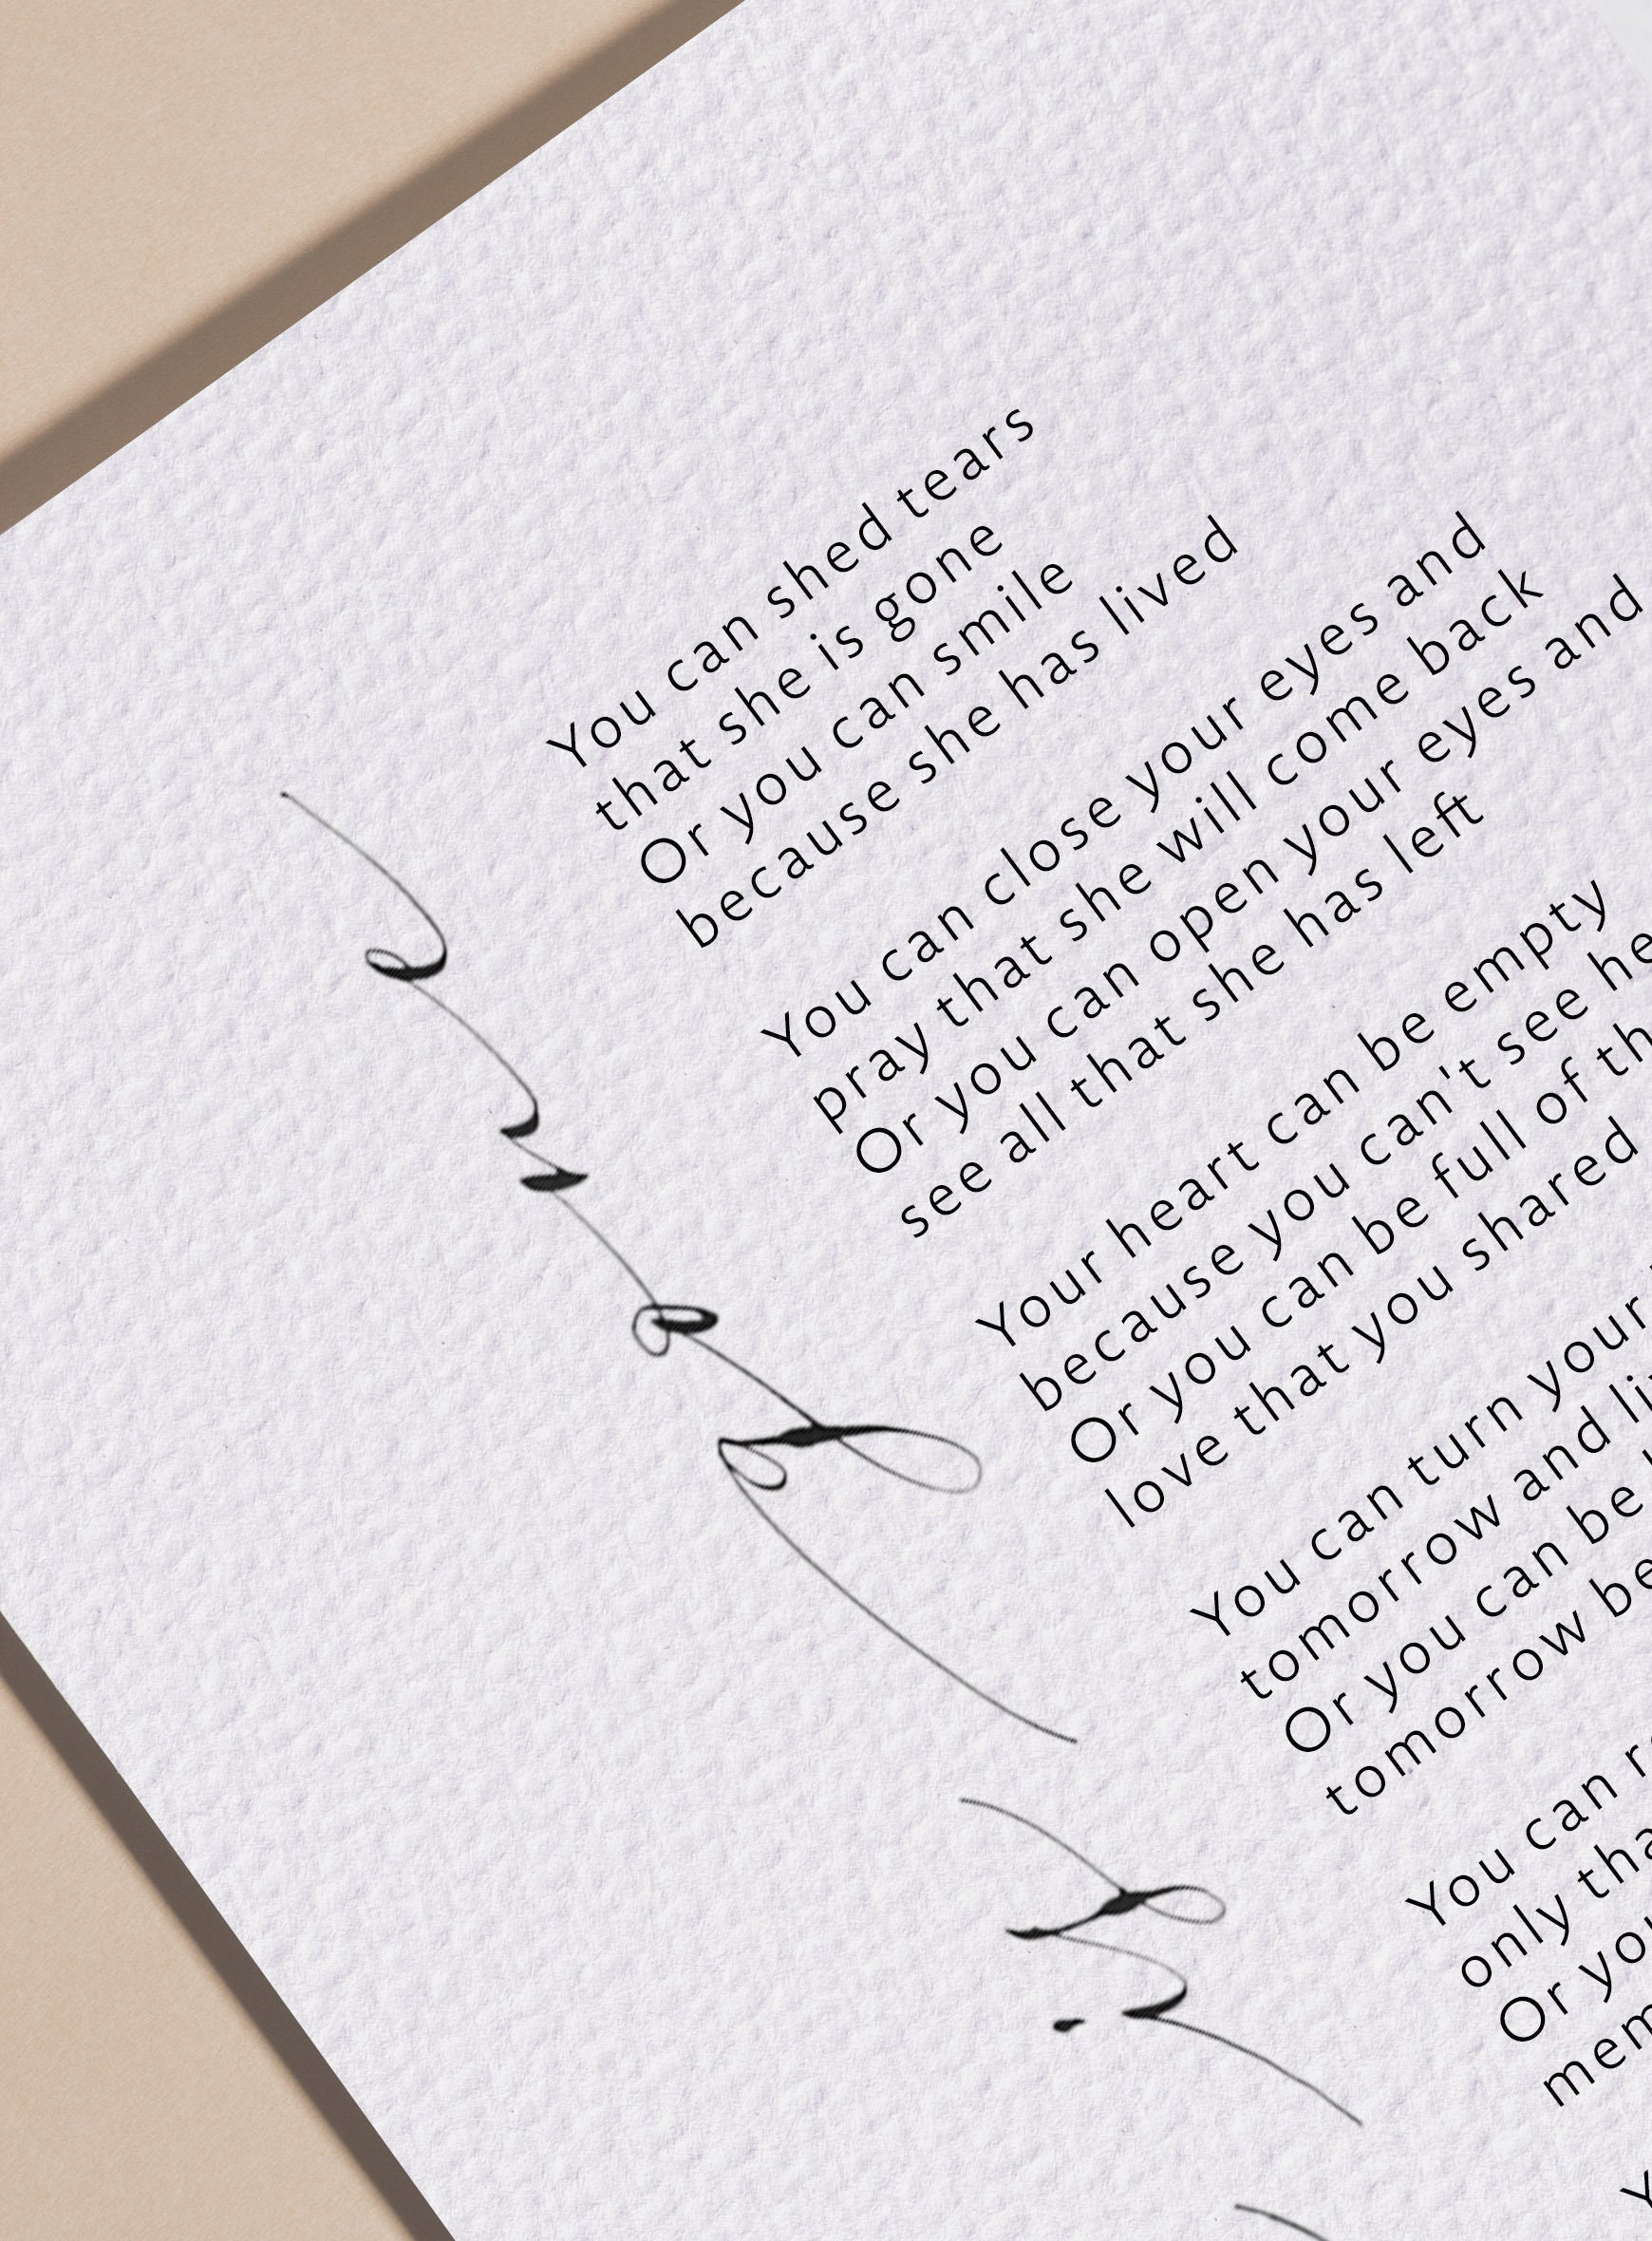 You can shed tears
that she is gone
Or you can smile
because she has lived
You can close your eyes and
pray that she will come back
Or you can open your eyes and
see all that she has left
Your heart can be empty
because you can't see he
Or you can be full of th
love that you shared
You can turn your
tomorrow and li
Or you can be
tomorrow be
You can r
only tha
Or you
mem
Y